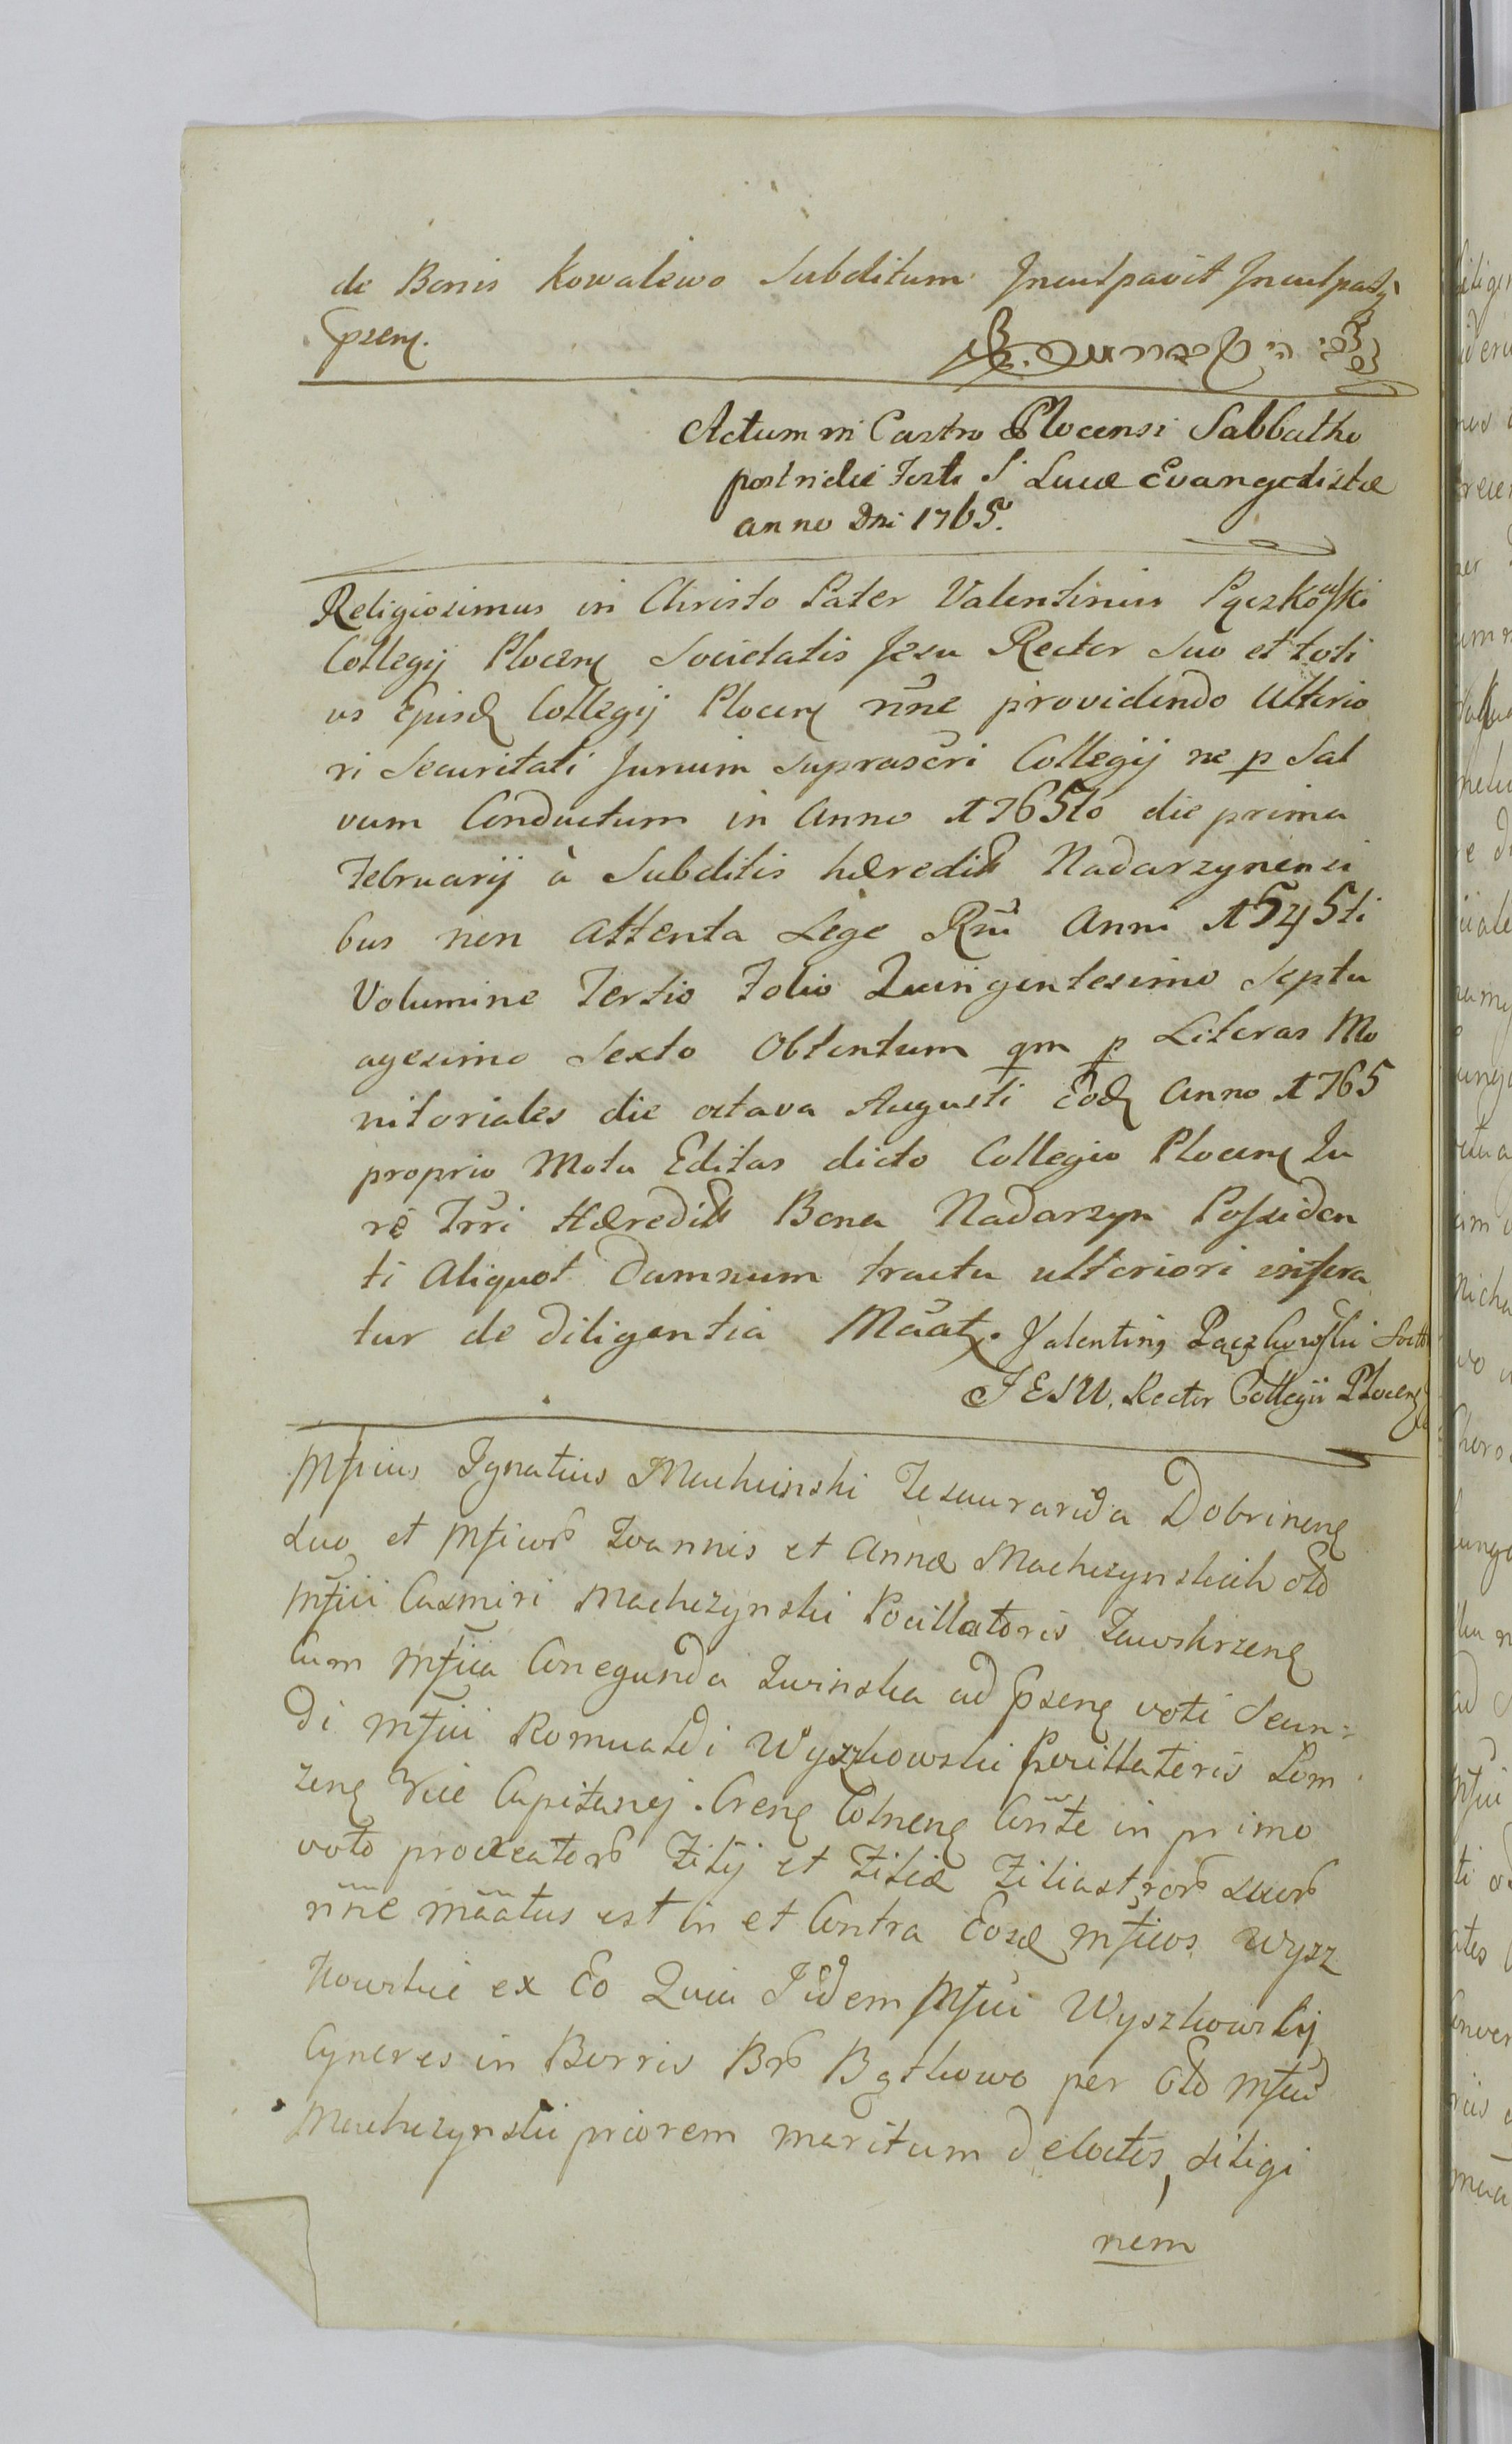 de Bonis Kowalewo Subditum Inculpavit Inculpatq
pzenς.
Actum in Castro Plocensi Sabbatho
postridie Festi S. Lucæ Evangelistæ
anno Dni 1765.
Religiosimus in Christo Pater Valentinus Pączkowski
Collegij Plocenς Societatis Jesu Rector Suo et toti
us Ejusd Collegij Plocenς nñe providendo Ulterio
ri Securitati Jurium suprascri Collegij ne p Sal
vum Conductum in Anno 1765to die prima
Februarij à Subditis hæredit Nadarzynensi
bus non attenta Lege Rni Anni 1545ti
Volumine Tertio Folio Quingentesimo Septu
agesimo Sexto Obtentum qm p Literas Mo
nitoriales die octava Augusti Eod Anno 1765
proprio Motu Editas dicto Collegio Plocenς Ju
re Trri Hæredit Bona Nadarzyn Possiden
ti Aliquot Damnum tractu ulteriori infera
tur de diligentia Mãatς. Valentinς Pączkowski Soctt
JESU, Rector Collegii Plocenς
Mfcus Ignatius Machcinski Tesaurarida Dobrinenς
Suo et Mficor Joannis et Annæ Machczynskich olo
Mfici Casmiri Machczynski Pocillatoris Zawskrzenς
Cum Mfica Conegunda Zwinska ad pzenς voti Secun=
di Mfici Romualdi Wyszkowski Pocillatoris Lom
zenς Vice Capitanej. Crenς Colnenς Cõñte in primo
voto procreator Filij et Filiæ Filiastror suor
nñe mãatus est in et Contra Eosd Mficos Wysz
kowskie ex Eo Quia Iidem Mfici Wyszkowscij
Cyneres in Borris Br Bątkowo per olo Mficu
Machczynski priorem maritum delocatos, siligi
nem